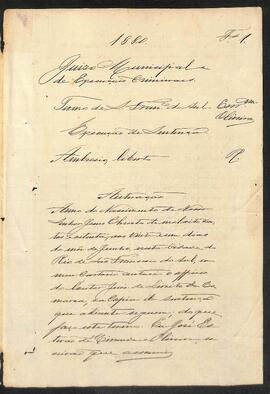 1880.
Fs 1.
Juizo Municipal e
de Execuções Criminaes.
Termo de S. Franc.º do Sul
Escr.am
Oliveira
Execução de Sentença
Ambrosio, liberto
R.
Autuação
Anno do Nascimento de Nosso
Senhor Jesus Christo de mil oito cen
tos e oitenta, aos vinte e um dias
do mez de Junho, nesta Cidade do
Rio de São Francisco do Sul, em
meu Cartorio autuo o officio
do Doutor Juiz de Direito da Co
marca, e a Copia da
que adiante seguem; do que
faço este termo. Eu José
de Oliveira, es
crivão que escrevi